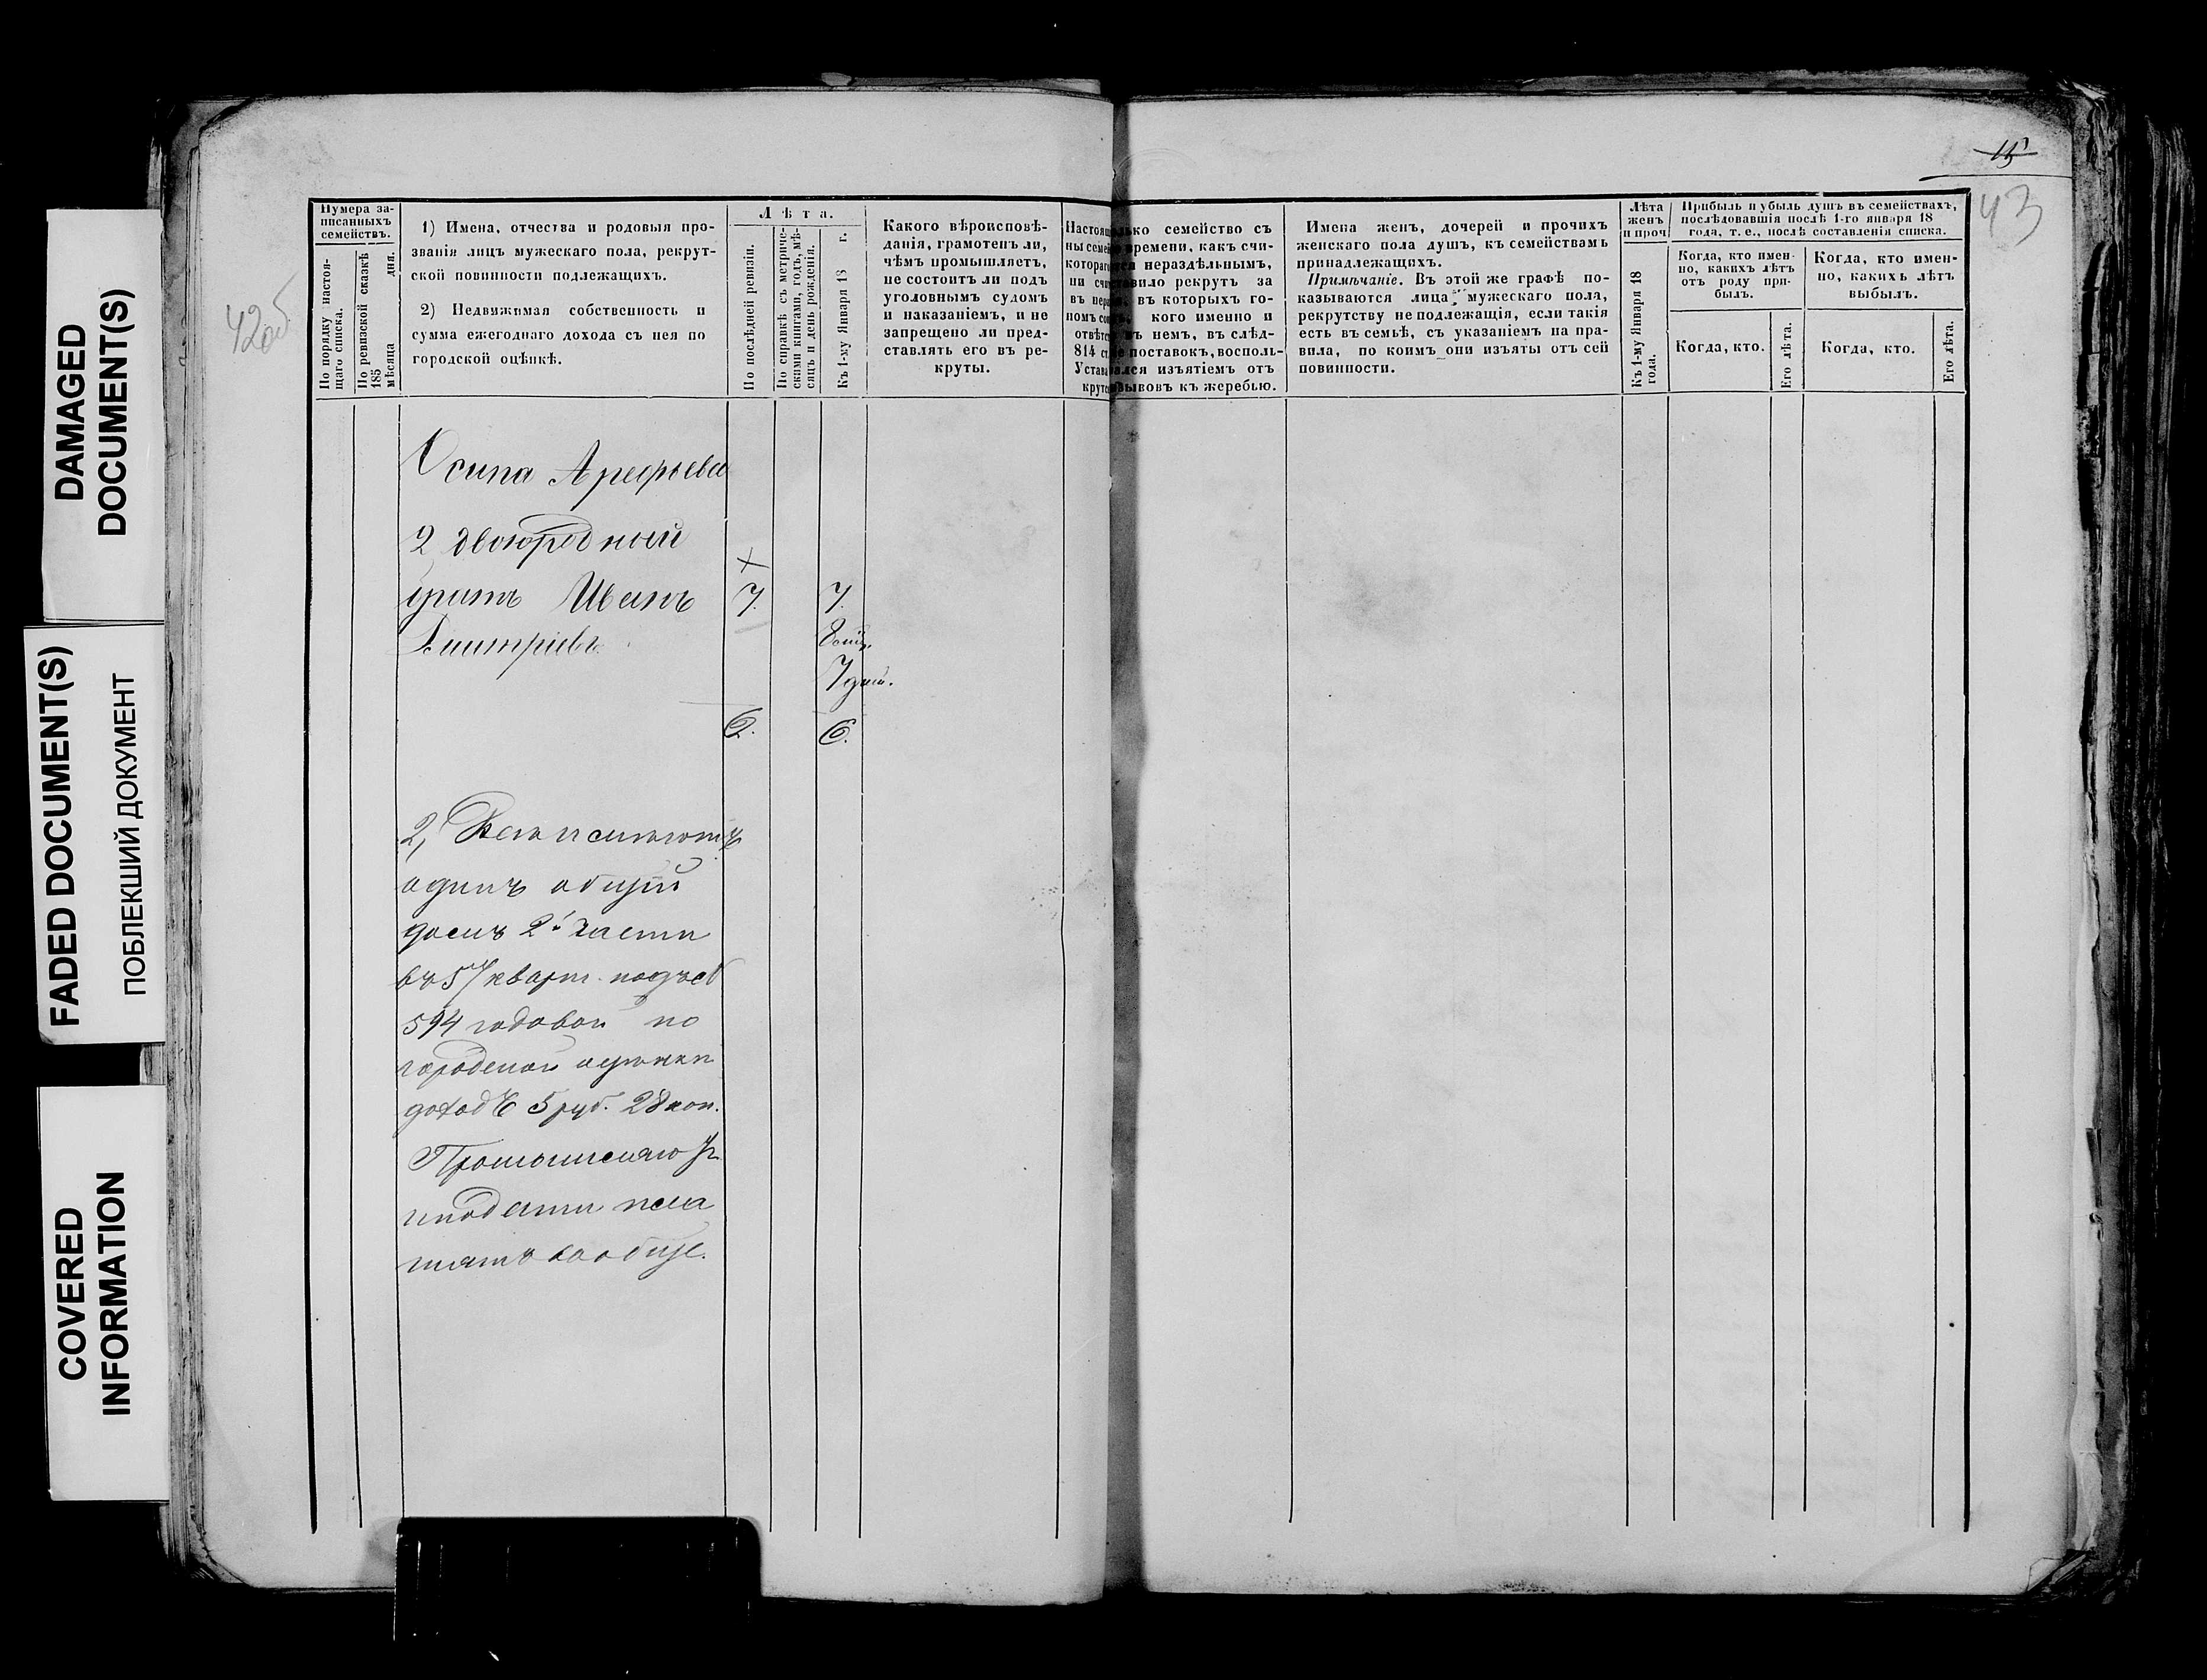 DAMAGED
DOCUMENT(S)
FADED DOCUMENT(S)
ПОБЛЕКШИЙ ДОКУМЕНТ
COVERED
INFORMATION
42об
15
43
Нумера за-
писанныхъ
семействъ.
По порядку настоя-
щаго списка.
По ревизской сказкѣ
185 дня.
мѣсяца
1) Имена, отчества и родовыя про-
званія лицъ мужескаго пола, рекрут-
ской повинности подлежащихъ.
2) Недвижимая собственность и
сумма ежегоднаго дохода съ нея по
городской оцѣнкѣ.
Лѣта.
По послѣдней ревизіи.
По справкѣ съ метриче-
скими книгами, годъ, мѣ-
сяцъ и день рожденія.
Къ 1-му Января 18 г.
Какого вѣроисповѣ-
данія, грамотенъ ли,
чѣмъ промышляетъ,
не состоитъ ли подъ
уголовнымъ судомъ
и наказаніемъ, и не
запрещено ли пред-
ставлять его въ ре-
круты.
Настоя
ны семей
котораго
ни счи
въ пер
номъ со
отвѣтс
814 ст.
Устава
крутс
лько семейство съ
времени, какъ счи-
тся нераздѣльнымъ,
ставило рекрутъ за
въ которыхъ го-
кого именно и
въ немъ, въ слѣд-
поставокъ, восполь-
ался изъятіемъ отъ
зывовъ къ жеребью.
Имена женъ, дочерей и прочихъ
женскаго пола душъ, къ семействамъ
принадлежащихъ.
Примѣчаніе. Въ этой же графѣ по-
казываются лица мужескаго пола,
рекрутству не подлежащія, если такія
есть въ семьѣ, съ указаніемъ на пра-
вила, по коимъ они изъяты отъ сей
повинности.
Лѣта
женъ
и проч
Къ 1-му Января 18
года.
Прибыль и убыль душъ въ семействахъ,
послѣдовавшія послѣ 1-го января 18
года, т. е., послѣ составленія списка.
Когда, кто имен-
но, какихъ лѣтъ
отъ роду при-
былъ.
Когда, кто имен-
но, какихъ лѣтъ
выбылъ.
Когда, кто.
Его лѣта.
Когда, кто.
Его лѣта.
Осипа Арефьева
2 двоюродный
братъ Иванъ 7. 7.
Дмитріевъ
7 дни.
2. 6.
2, Всѣ имѣютъ
одинъ общій
домъ 2й части
въ 57 кварт. подъ №
594 годовой по
городской оцѣнки
доходъ 5 руб. 28 коп.
Промышляютъ
и подати пла
тятъ вообще.